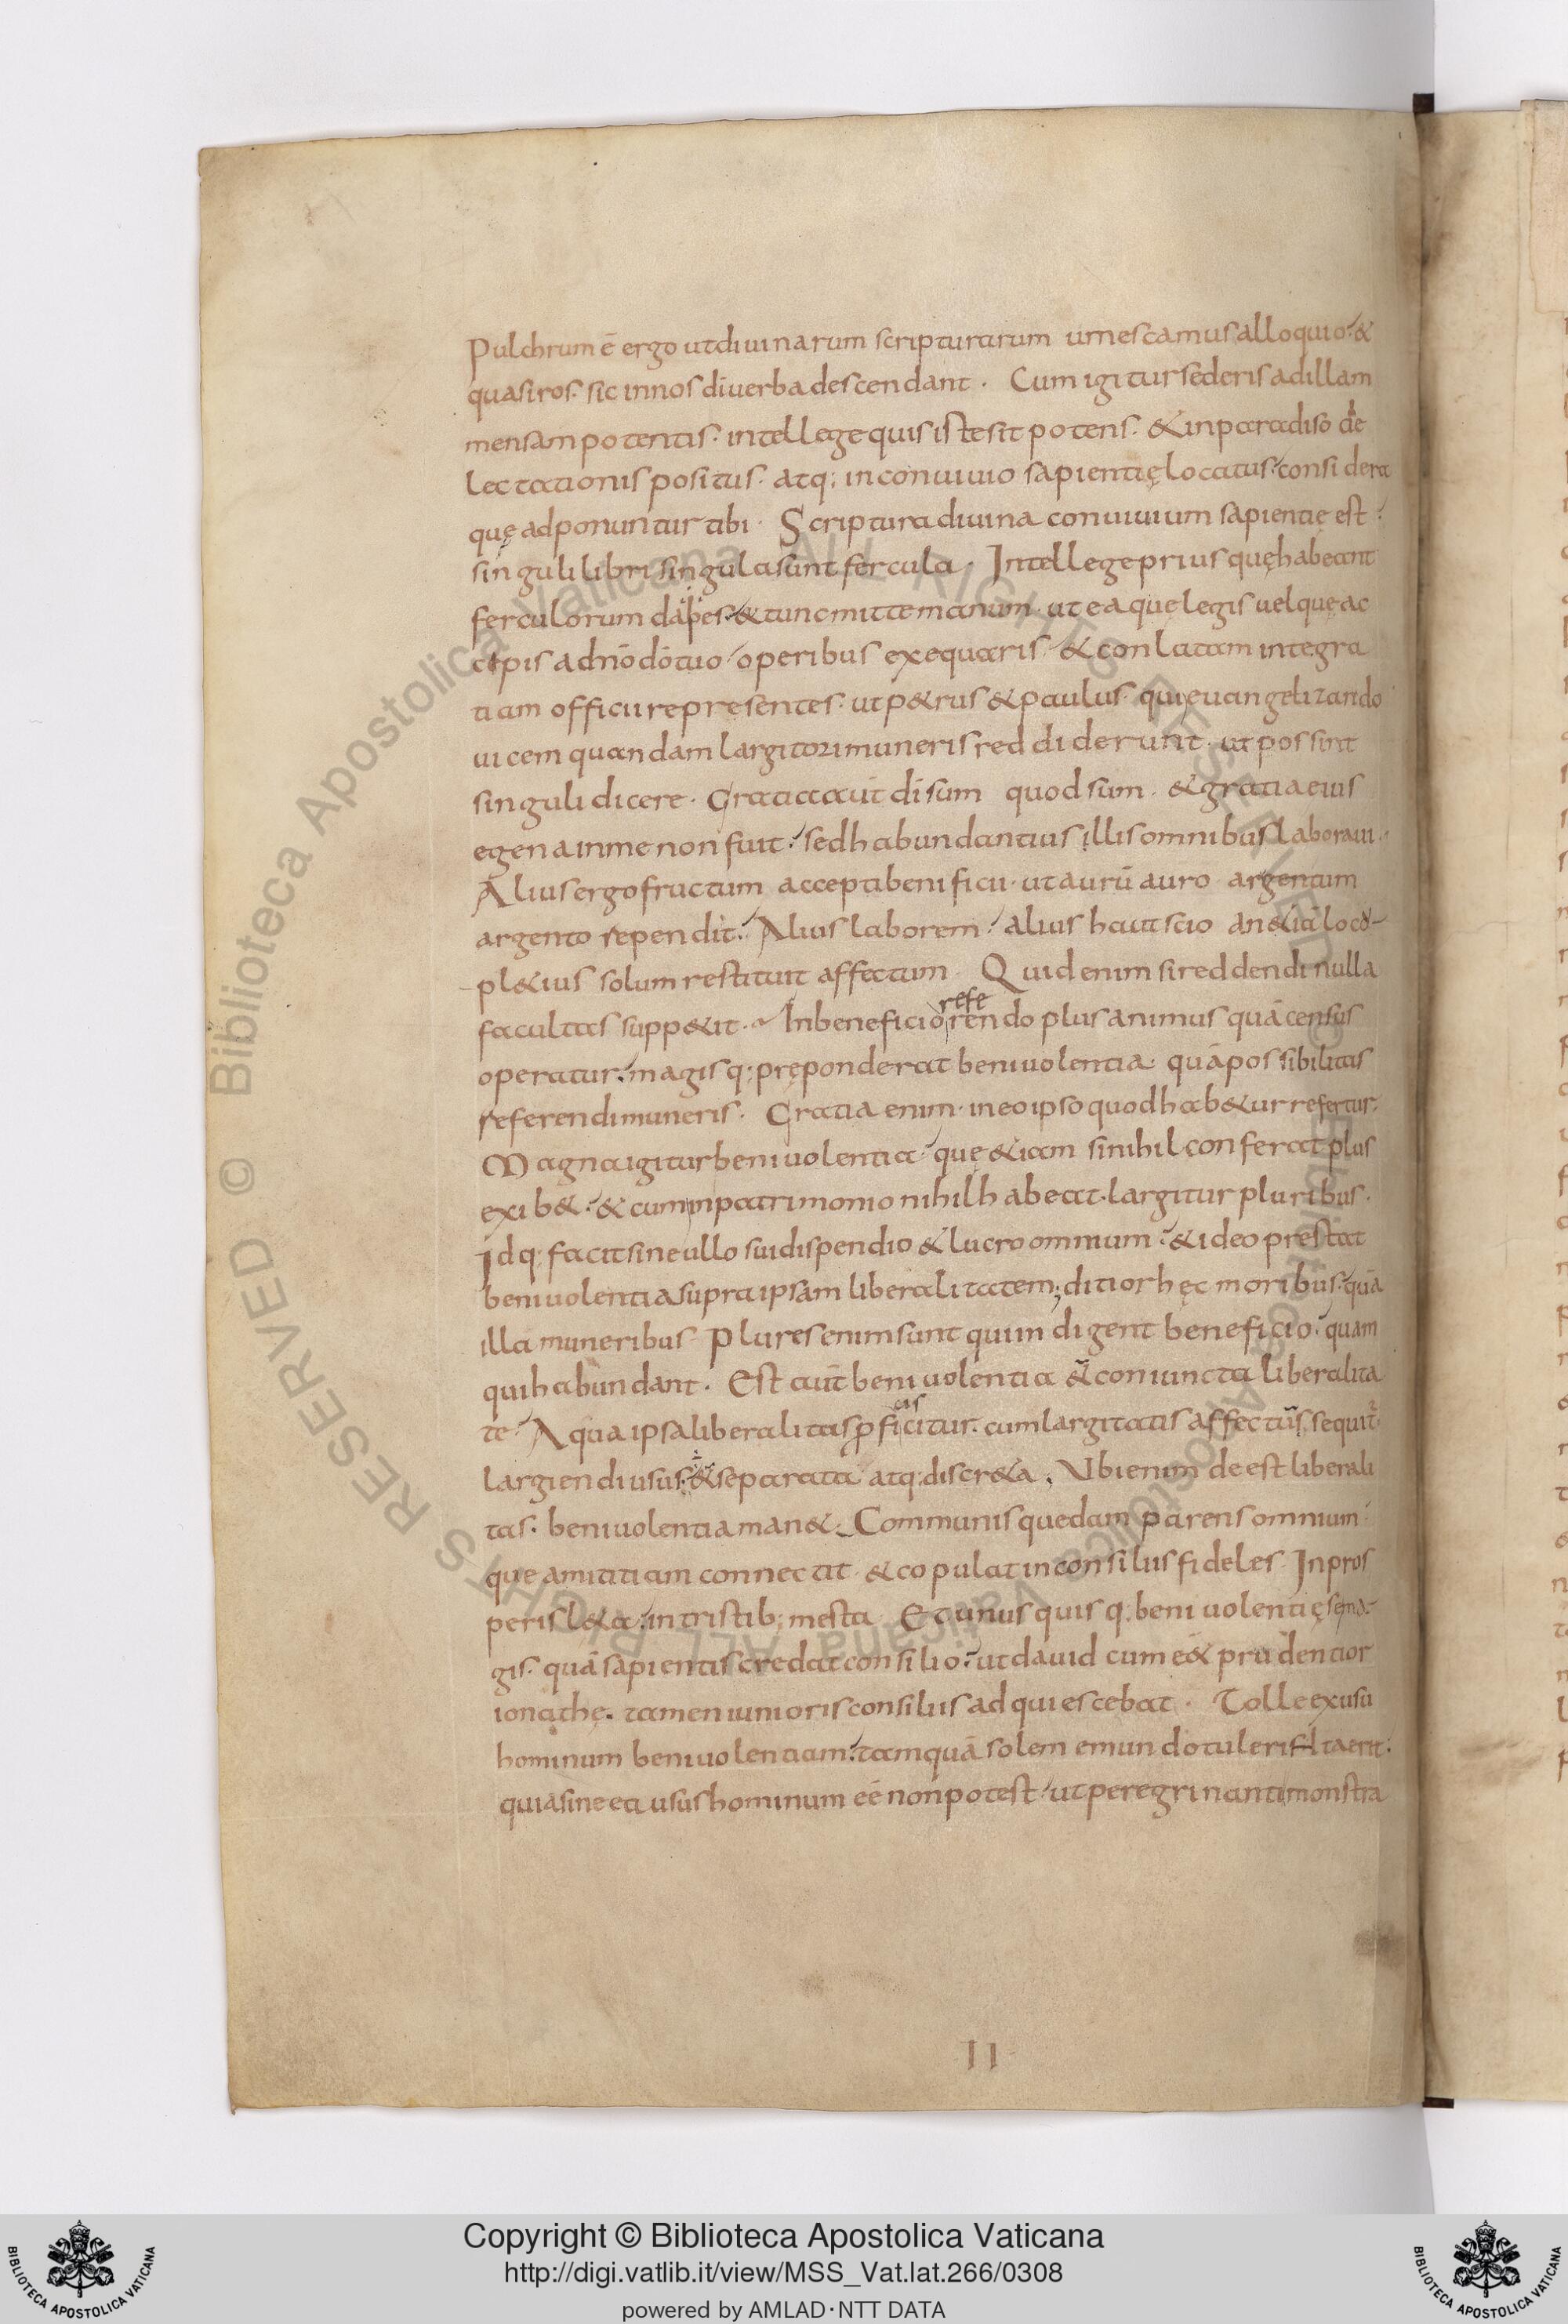 Pulchrum ē ergo ut diuinarum scripturarum uirescamus alloquio. &
quasi ros. sic in nos dī uerba descendant. Cum igitur sederis ad illam
mensam potentis. intellege quis iste sit potens. & in paradiso de
lectationis positus. atq; in conuiuio sapientię locatus. considera
quę adponuntur tibi. Scriptura diuina conuiuium sapientię est.
singuli libri singula sunt fercula. Intellege prius quę habeant
ferculorum dapes. & tunc mitte manum. ut ea quę legis uel quę ac
cipis a dn̄o dō tuo operibus exequaris. & conlatam in te gra
tiam officii repręsentes. ut p&rus & paulus. qui euangelizando
uicem quandam largitori muneris reddiderunt. ut possint
singuli dicere. Gratia aut̄ dī sum quod sum. & gratia eius
egena in me non fuit. sed habundantius illis omnibus laboraui.
Alius ergo fructum accepti benificii. ut aurū auro argentum
argento rependit. Alius laborem. alius haut scio an &iā loco
pl&ius solum restituit affectum. Quid enim si reddendi nulla
facultas supp&it. In beneficio referendo plus animus quā census
operatur. magisq; pręponderat beniuolentia. quā possibilitas
referendi muneris. Gratia enim. in eo ipso quod hab&ur refertur.
Magna igitur beniuolentia. quę &iam si nihil conferat plus
exib&. & cum in patrimonio nihil habeat. largitur pluribus.
Idq; facit sine ullo sui dispendio & lucro omnium. & ideo prestat
beniuolentia supra ipsam liberalitatem; ditior hęc moribus. quā
illa muneribus Plures enim sunt qui indigent beneficio. quam
qui habundant. Est aut̄ beniuolentia & coniuncta liberalita
te. A qua ipsa liberalitas proficiscitur. cum largitatis affectus sequit̄
largiendi usus. & separata atq; discr&a. Vbi enim deest liberali
tas. beniuolentia man&. Communis quedam parens omnium
que amititiam connectit & copulat in consiliis fideles. In pros
peris l&a. in tristib; mesta Et unusquisq; beniuolentię se ma
gis. quā sapientis credat consilio. ut dauid cum eē& prudentior
ionathę. tamen iunioris consiliis adquiescebat. Tolle ex usu
hominum beniuolentiam. tamquā solem e mundo tuleris Ita erit.
quia sine ea usus hominum eē non potest. ut peregrinanti monstra
II
Copyright © Biblioteca Apostolica Vaticana
http://digi.vatlib.it/view/MSS_Vat.lat.266/0308
powered by AMLAD·NTT DATA
BIBLIOTECA APOSTOLICA VATICANA
BIBLIOTECA APOSTOLICA VATICANA
© Biblioteca Apostolica Vaticana ALL RIGHTS RESERVED
© Biblioteca Apostolica Vaticana ALL RIGHTS RESERVED